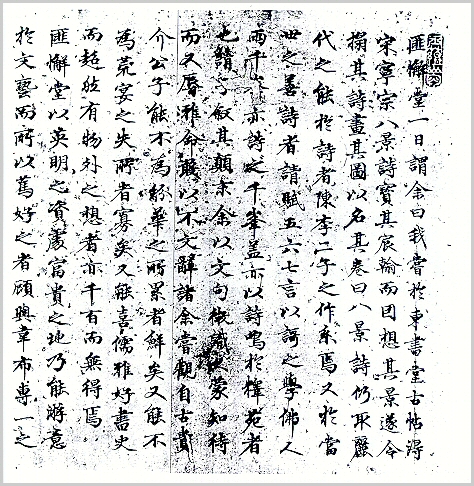 匪懈堂一日謂余曰我嘗於東書堂古帖得
宋寧宗八景詩寶其宸翰而因想其景遂令
搨其詩畫其圖以名其卷曰八景詩仍取麗
代之能於詩者陳李二子之作系焉又於當
世之善詩者請賦五六七言以謌之學佛人
雨千峯亦詩之千峯盖亦以詩鳴於釋苑者
也叙其顛末余以文句微識蒙知待
而又辱雅命敢以不文辭諸余嘗觀自古貴
介公子能不為紛華之所累者鮮矣又能不
為荒宴之失所者寡矣又能喜儒雅好書史
而超然有物外之想者亦千百而無得焉
匪懈堂以英明之資處富貴之地乃能將意
於文藝而所以篤好之者顧與韋布專一之